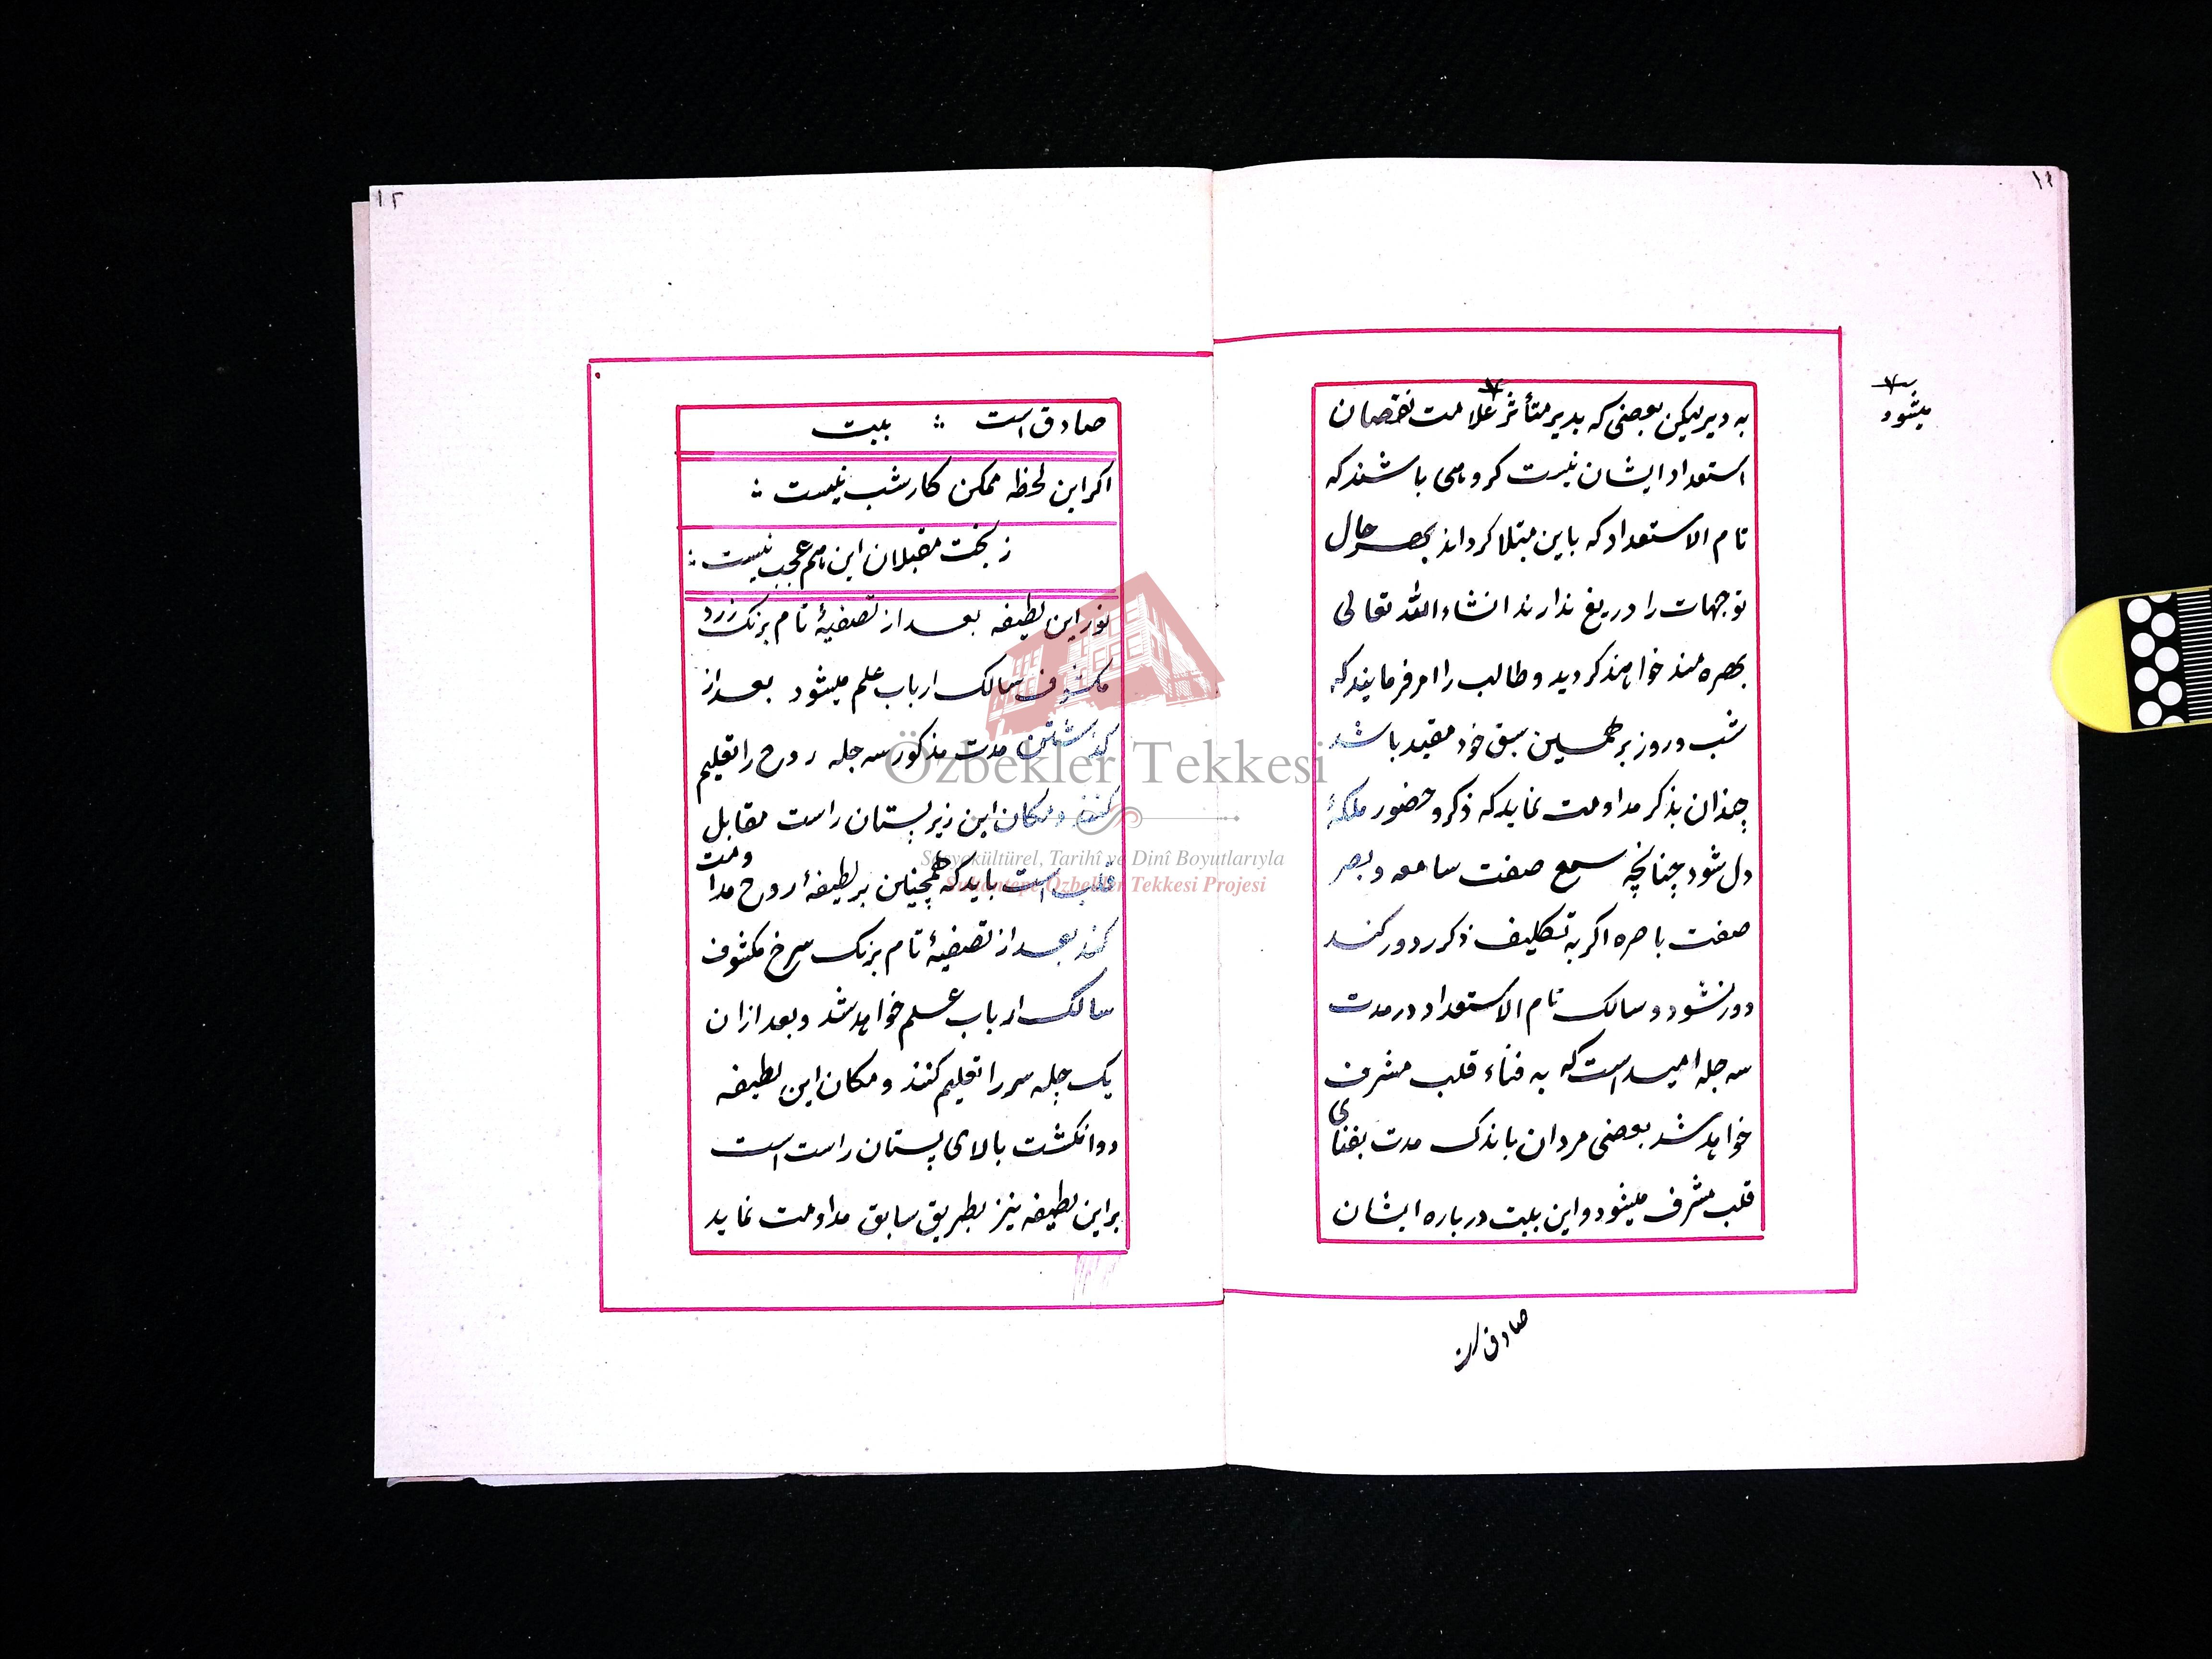 ١١
به دیر لیکن بعضی که بدیر متأثر علامت نقصان
میشود
استعداد ایشان نیست کروهی باشند که
تام الاستعداد که باین مبتلا کرد اند بهر حال
توجهات را دریغ ندارند انشاء الله تعالی
بهره مند خواهند کردید و طالب را امر فرمایند که
شب و روز بر همین سبق خود مقید باشد
چندان بذکر مداومت نماید که ذکر و حضور ملکهٔ
دل شود چنانچه سمع صفت سامعه و بصر
صفت باصره اکر به تکلیف ذکر را دور کند
دور نشود و سالک تام الاستعداد در مدت
سه چله امید است که به فناء قلب مشرف
خواهد شد بعضی مردان باندک مدت بفنای
قلب مشرف میشود و این بیت درباره ایشان
صادق است
١٢
صادق است ⁖ بیت
اکر این لحظه ممکن کار شب نیست ⁖
ز بخت مقبلان این هم عجب نیست ⁖
نور این لطیفه بعد از تصفیهٔ تام برنک زرد
مکشوف سالک ارباب علم میشود بعد از
کذشتن مدت مذکور سه چله روح را تعلیم
کنند و مکان این زیر پستان راست مقابل
قلب است باید که همچنین بر لطیفهٔ روح مداومت
کند بعد از تصفیهٔ تام برنک سرخ مکشوف
سالک ارباب علم خواهد شد و بعد ازان
یک چله سر را تعلیم کنند و مکان این لطیفه
دو انکشت بالای پستان راست است
بر این لطیفه نیز بطریق سابق مداومت نماید
Özbekler Tekkesi
Sosyokültürel, Tarihî ve Dinî Boyutlarıyla
Sultantepe Özbekler Tekkesi Projesi